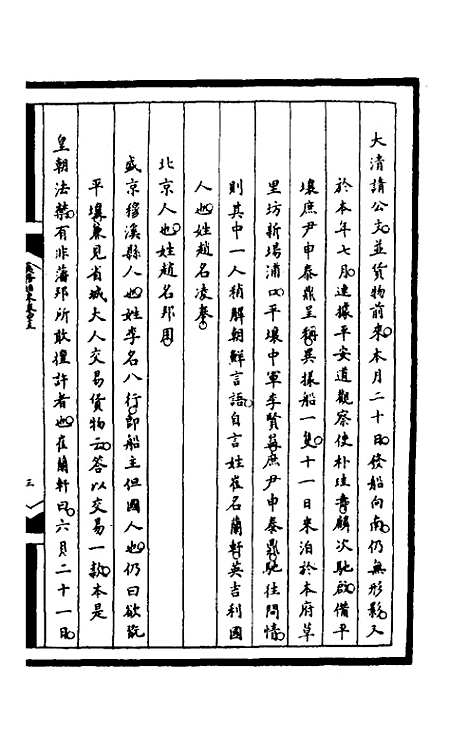 大清請公文並貨物前來本月二十日倐船向南仍無形影又
於本年七月連據平安道觀察使朴珪壽鱗次馳啟備平
壤庶尹申泰鼎呈稱異樣船一隻十一日來泊於本府草
里坊新場浦口平壤中軍李賢益庶尹申泰鼎馳往問情
則其中一人稍解朝鮮言語自言姓崔名蘭軒英吉利國
人也姓趙名凌奉
北京人也姓趙名邦用
盛京穆溪縣人也姓李名八行即船主但國人也仍曰欲玩
平壤兼見省城大人交易貨物云答以交易一款本是
皇朝法禁有非藩邦所敢擅許者也崔蘭軒曰六月二十一日
三